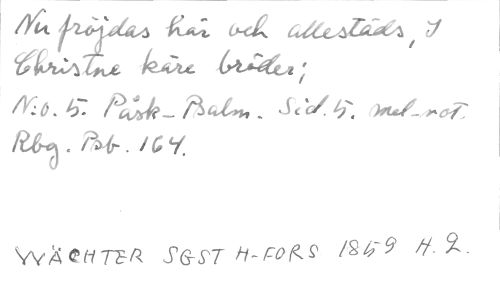 Nu fröjdas här och allestäds, I
Christne käre bröder;
N:o. 5. Påsk-Psalm. Sid. 5. mel-not.
Rbg. Psb. 164.
WÄCHTER SGST H-FORS 1859 H. 2.